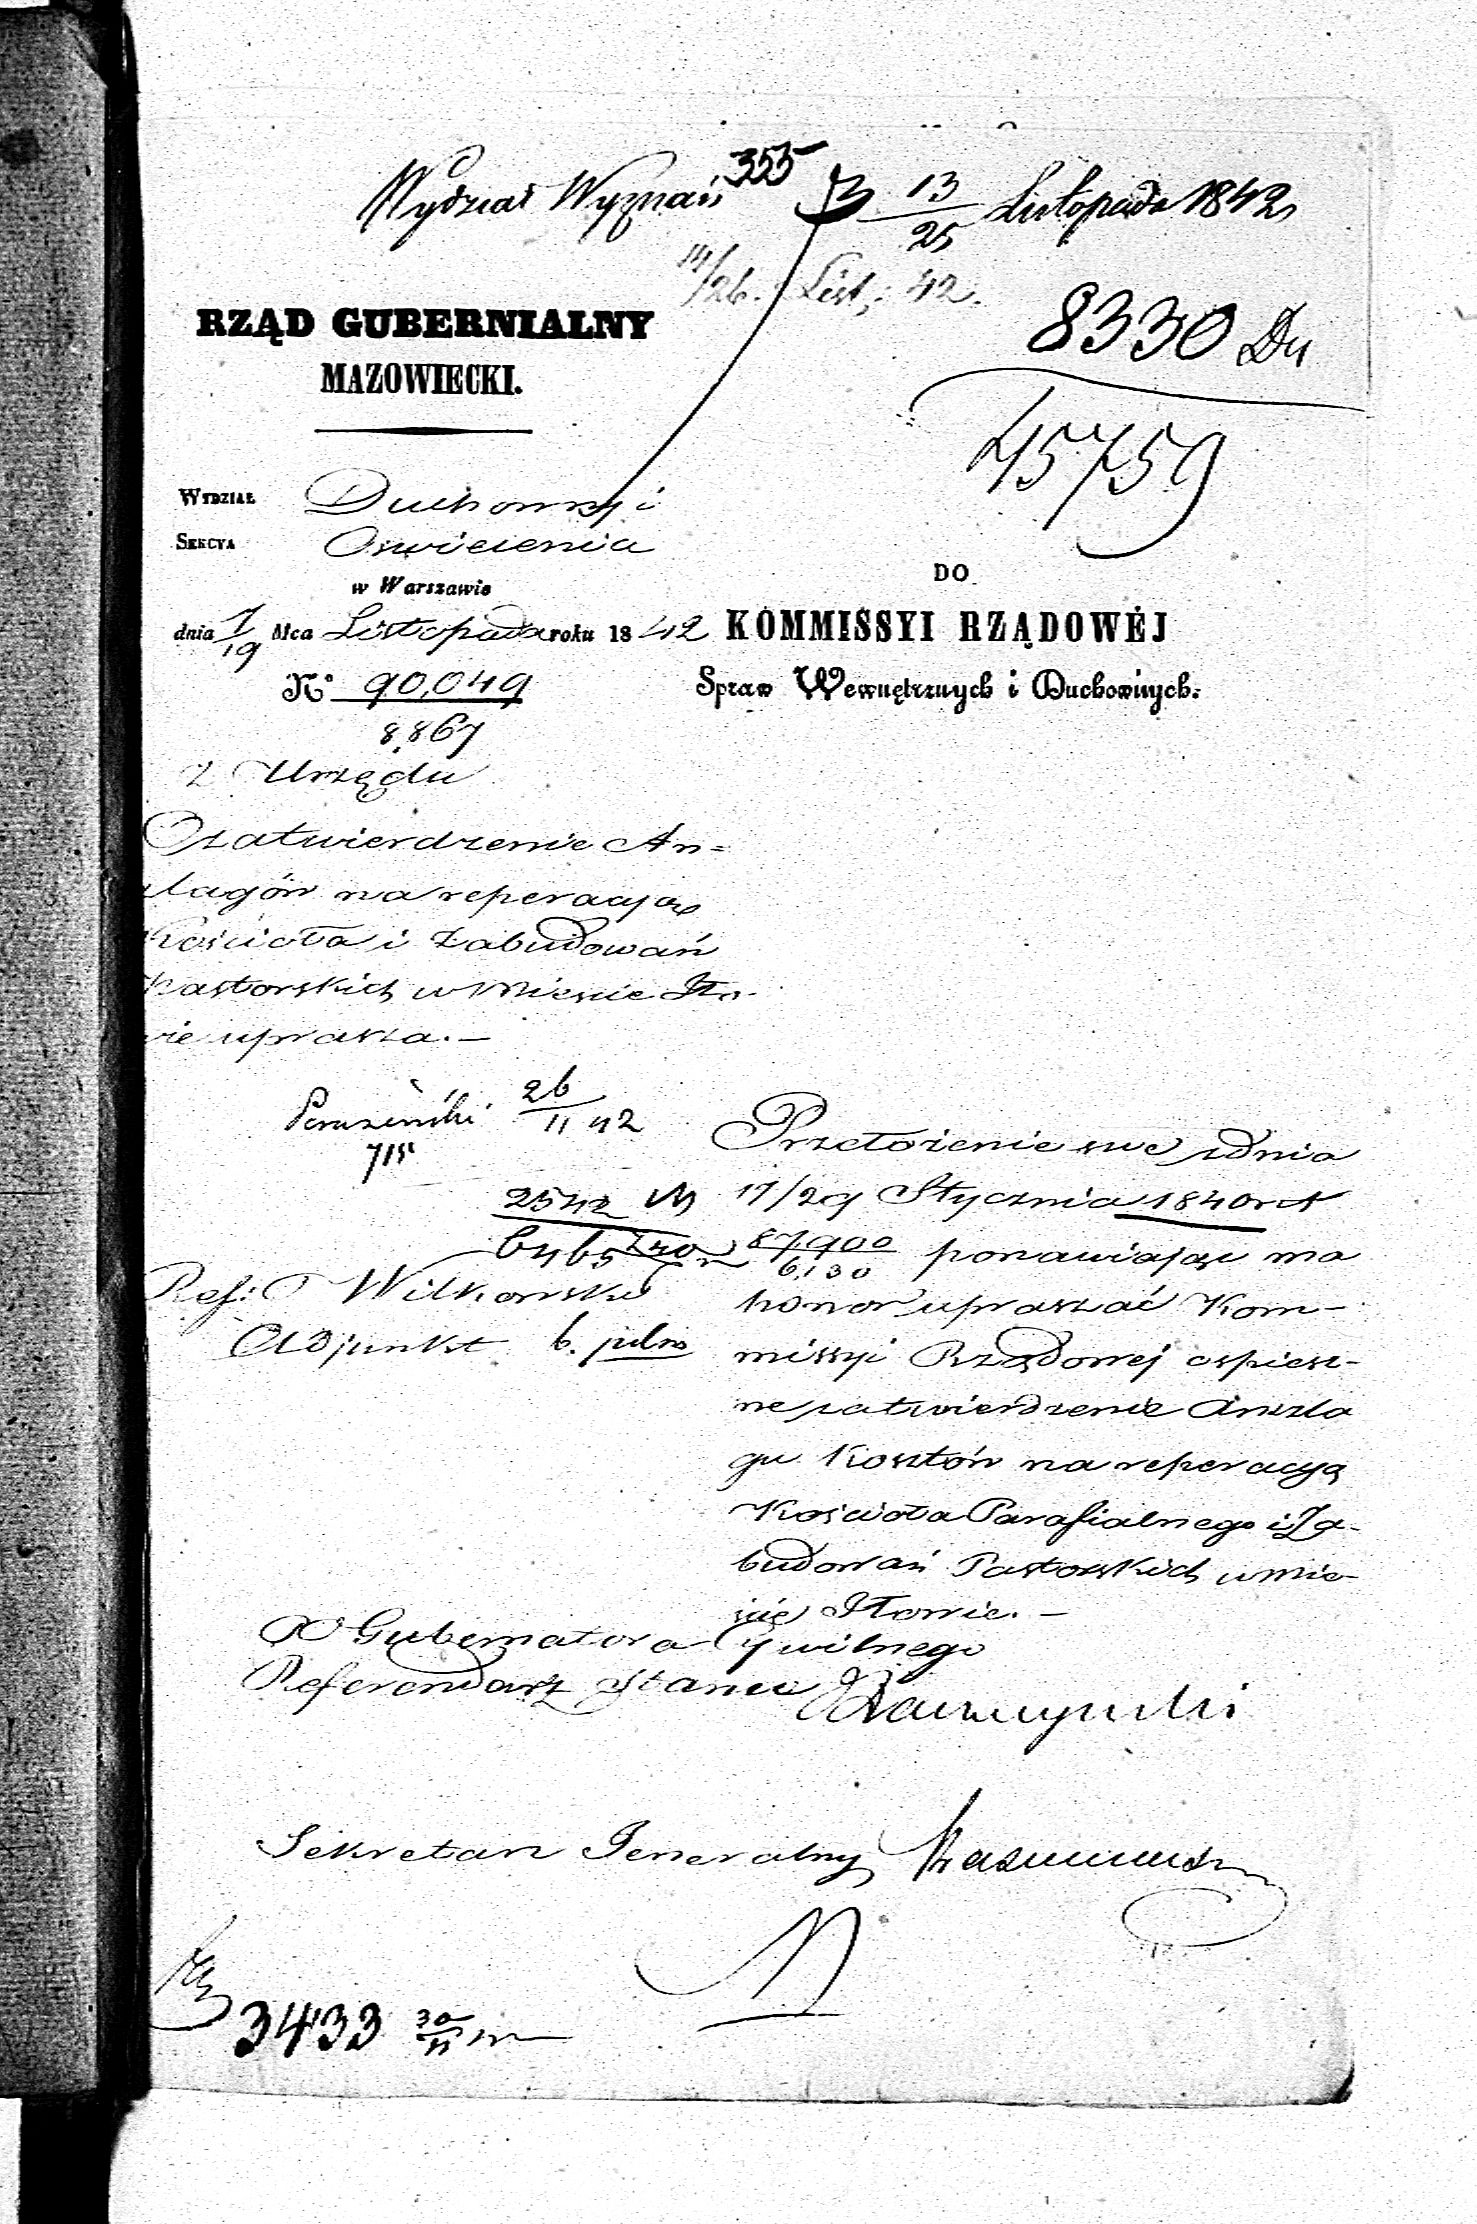 355
Wydział Wyznań 13/25 Listopada 1842
14/26. List: 42.
8330 Du
45759
RZĄD GUBERNIALNY
MAZOWIECKI.
WYDZIAŁ Duchowny i
SEKCYA Oswiecenia
w Warszawie
dnia 7/19 Mca Listopada roku 1842
N° 90,049
8,867
z Urzędu
DO
KOMMISSYI RZĄDOWÉJ
Spraw Wewnętrznych i Duchownych.
O zatwierdzenie An=
szlagów na reperacyą
Kościoła i Zabudowań
Pastorskich w Mieście Iło-
wie uprasza.—
26/11 42
715
2542
6465
Ref: Wilkonski
Adjunkt b. pilno
Przełożenie swe z dnia
17/29 Stycznia 1840 r N
87,900/6,130 ponawiając ma
honor upraszać Kom-
missyi Rządowej o spiesz-
ne zatwierdzenie Anszla
gu Kosztów na reperacyą
Kościoła Parafialnego i Za-
budowań Pastorskich w Mie-
ście Iłowie.—
Gubernatora Cywilnego
Referendarz Stanu
Sekretarz Jeneralny
3433 30/11